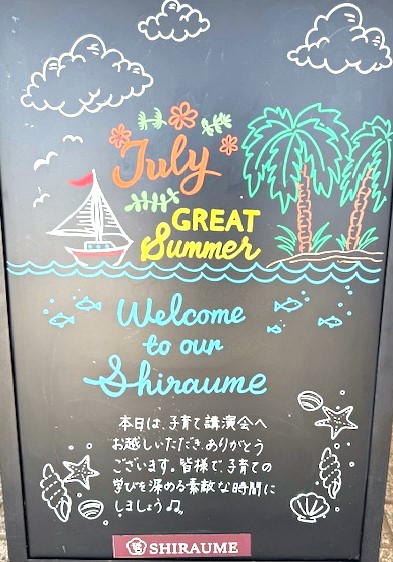 July
GREAT
Summer
Welcome
to our
Shiraume
本日は、子育て講演会へ
お越しいただき、ありがとう
ございます。皆様で、子育ての
学びを深める素敵な時間に
しましょう♫。
SHIRAUME